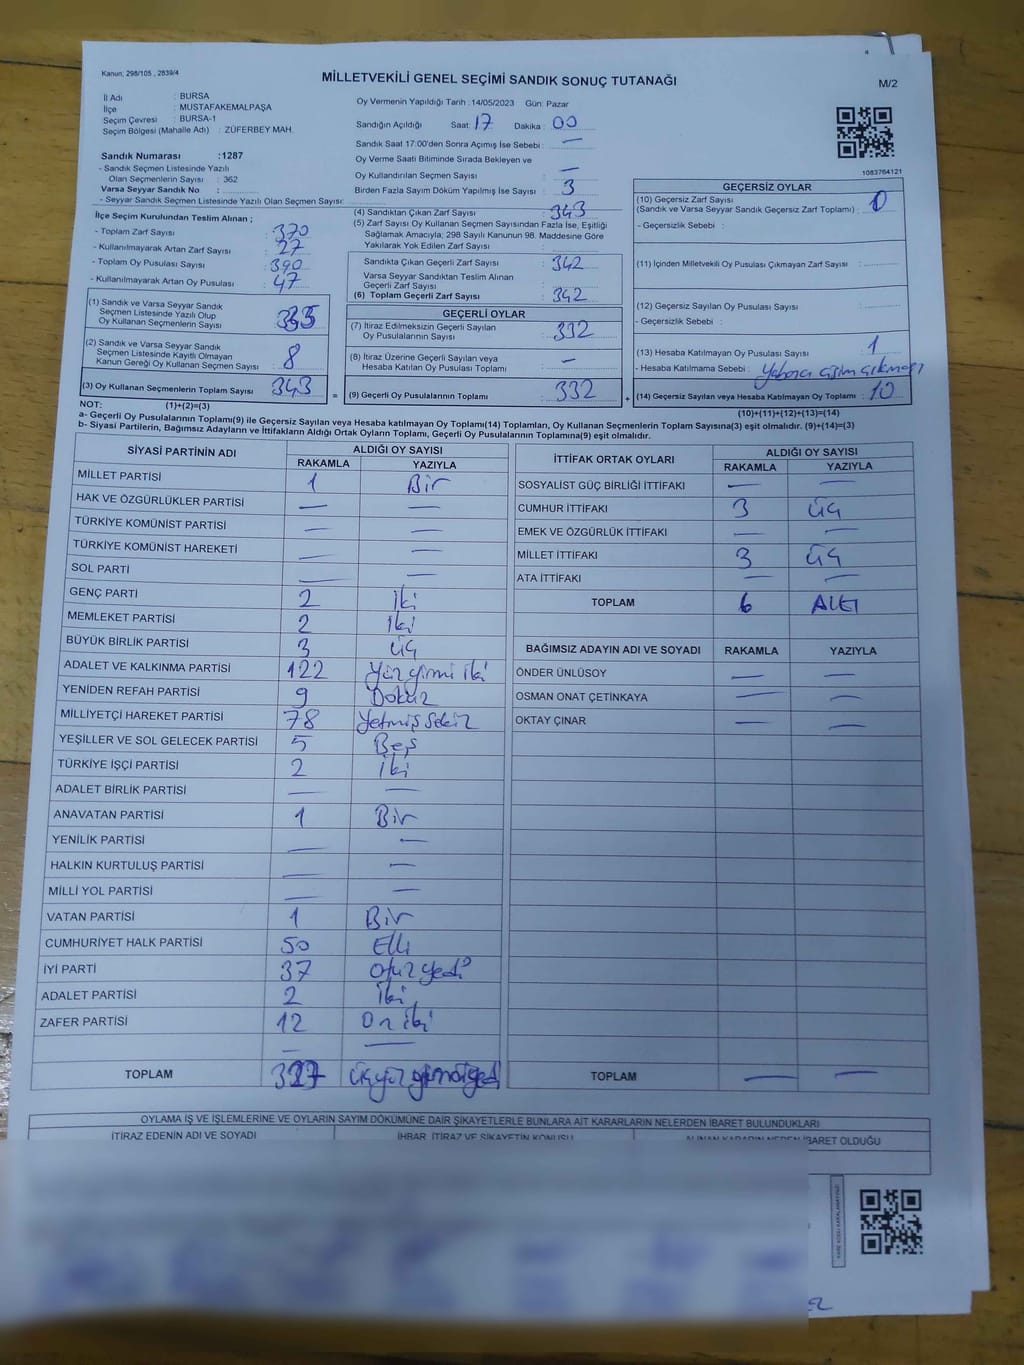 Kanun, 298/105 , 2839/4
MİLLETVEKİLİ GENEL SEÇİMİ SANDIK SONUÇ TUTANAĞI
M/2
İl Adı : BURSA
İlçe : MUSTAFAKEMALPAŞA
Seçim Çevresi : BURSA-1
Seçim Bölgesi (Mahalle Adı) : ZÜFERBEY MAH.
Sandık Numarası :1287
- Sandık Seçmen Listesinde Yazılı
Olan Seçmenlerin Sayısı : 362
Varsa Seyyar Sandık No :
- Seyyar Sandık Seçmen Listesinde Yazılı Olan Seçmen Sayısı:
İlçe Seçim Kurulundan Teslim Alınan ;
- Toplam Zarf Sayısı : 370
- Kullanılmayarak Artan Zarf Sayısı : 27
- Toplam Oy Pusulası Sayısı : 390
- Kullanılmayarak Artan Oy Pusulası Sayısı : 47
(1) Sandık ve Varsa Seyyar Sandık
Seçmen Listesinde Yazılı Olup
Oy Kullanan Seçmenlerin Sayısı : 335
(2) Sandık ve Varsa Seyyar Sandık
Seçmen Listesinde Kayıtlı Olmayan
Kanun Gereği Oy Kullanan Seçmen Sayısı : 8
(3) Oy Kullanan Seçmenlerin Toplam Sayısı : 343 =
Oy Vermenin Yapıldığı Tarih :14/05/2023 Gün: Pazar
Sandığın Açıldığı Saat: 17 Dakika : 00
Sandık Saat 17:00'den Sonra Açımış İse Sebebi : —
Oy Verme Saati Bitiminde Sırada Bekleyen ve
Oy Kullandırılan Seçmen Sayısı : —
Birden Fazla Sayım Döküm Yapılmış İse Sayısı : 3
(4) Sandıktan Çıkan Zarf Sayısı : 343
(5) Zarf Sayısı Oy Kullanan Seçmen Sayısından Fazla İse, Eşitliği
Sağlamak Amacıyla; 298 Sayılı Kanunun 98. Maddesine Göre
Yakılarak Yok Edilen Zarf Sayısı :
Sandıkta Çıkan Geçerli Zarf Sayısı : 342
Varsa Seyyar Sandıktan Teslim Alınan
Geçerli Zarf Sayısı :
(6) Toplam Geçerli Zarf Sayısı : 342
GEÇERLİ OYLAR
(7) İtiraz Edilmeksizin Geçerli Sayılan
Oy Pusulalarının Sayısı : 332
(8) İtiraz Üzerine Geçerli Sayılan veya
Hesaba Katılan Oy Pusulası Sayısı : —
(9) Geçerli Oy Pusulalarının Toplamı : 332 +
1083764121
GEÇERSİZ OYLAR
(10) Geçersiz Zarf Sayısı
(Sandık ve Varsa Seyyar Sandık Geçersiz Zarf Toplamı) : 0
- Geçersizlik Sebebi :
(11) İçinden Milletvekili Oy Pusulası Çıkmayan Zarf Sayısı :
(12) Geçersiz Sayılan Oy Pusulası Sayısı :
- Geçersizlik Sebebi :
(13) Hesaba Katılmayan Oy Pusulası Sayısı : 1
- Hesaba Katılmama Sebebi :
(14) Geçersiz Sayılan veya Hesaba Katılmayan Oy Toplamı : 10
NOT: (1)+(2)=(3)
(10)+(11)+(12)+(13)=(14)
a- Geçerli Oy Pusulalarının Toplamı(9) ile Geçersiz Sayılan veya Hesaba katılmayan Oy Toplamı(14) Toplamları, Oy Kullanan Seçmenlerin Toplam Sayısına(3) eşit olmalıdır. (9)+(14)=(3)
b- Siyasi Partilerin, Bağımsız Adayların ve İttifakların Aldığı Ortak Oyların Toplamı, Geçerli Oy Pusulalarının Toplamına(9) eşit olmalıdır.
SİYASİ PARTİNİN ADI ALDIĞI OY SAYISI
RAKAMLA YAZIYLA
MİLLET PARTİSİ 1 Bir
HAK VE ÖZGÜRLÜKLER PARTİSİ — —
TÜRKİYE KOMÜNİST PARTİSİ — —
TÜRKİYE KOMÜNİST HAREKETİ — —
SOL PARTİ — —
GENÇ PARTİ 2 İki
MEMLEKET PARTİSİ 2 İki
BÜYÜK BİRLİK PARTİSİ 3 üç
ADALET VE KALKINMA PARTİSİ 122 Yüzyirmi iki
YENİDEN REFAH PARTİSİ 9 Dokuz
MİLLİYETÇİ HAREKET PARTİSİ 78 Yetmiş sekiz
YEŞİLLER VE SOL GELECEK PARTİSİ 5 Beş
TÜRKİYE İŞÇİ PARTİSİ 2 İki
ADALET BİRLİK PARTİSİ — —
ANAVATAN PARTİSİ 1 Bir
YENİLİK PARTİSİ — —
HALKIN KURTULUŞ PARTİSİ — —
MİLLİ YOL PARTİSİ — —
VATAN PARTİSİ 1 Bir
CUMHURİYET HALK PARTİSİ 50 Elli
İYİ PARTİ 37 otuz yedi
ADALET PARTİSİ 2 İki
ZAFER PARTİSİ 12 On iki
— —
TOPLAM
İTTİFAK ORTAK OYLARI ALDIĞI OY SAYISI
RAKAMLA YAZIYLA
SOSYALİST GÜÇ BİRLİĞİ İTTİFAKI — —
CUMHUR İTTİFAKI 3 üç
EMEK VE ÖZGÜRLÜK İTTİFAKI — —
MİLLET İTTİFAKI 3 üç
ATA İTTİFAKI — —
TOPLAM 6 Altı
BAĞIMSIZ ADAYIN ADI VE SOYADI RAKAMLA YAZIYLA
ÖNDER ÜNLÜSOY — —
OSMAN ONAT ÇETİNKAYA — —
OKTAY ÇINAR — —
TOPLAM — —
OYLAMA İŞ VE İŞLEMLERİNE VE OYLARIN SAYIM DÖKÜMÜNE DAİR ŞİKAYETLERLE BUNLARA AİT KARARLARIN NELERDEN İBARET BULUNDUKLARI
İTİRAZ EDENİN ADI VE SOYADI İHBAR, İTİRAZ VE ŞİKAYETİN KONUSU ALINAN KARARIN NEDEN İBARET OLDUĞU